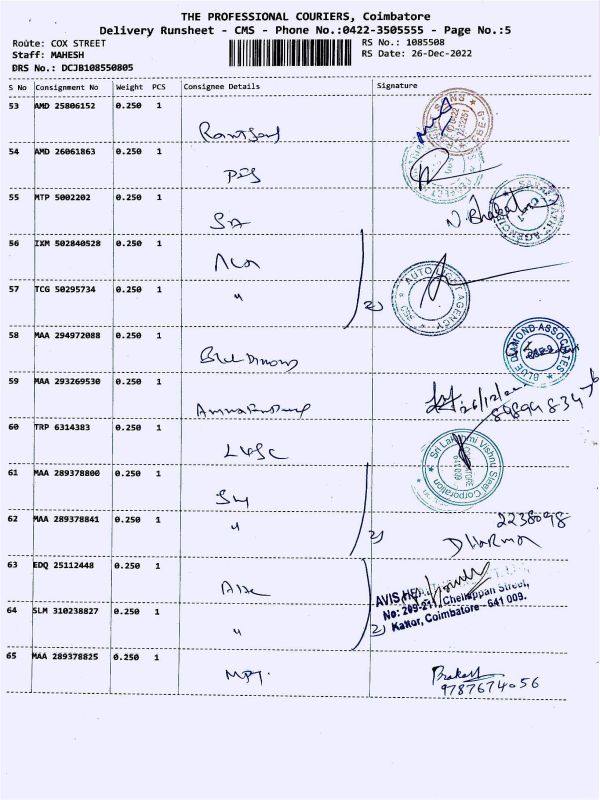 THE PROFESSIONAL COURIERS, Coimbatore
Delivery Runsheet - CMS - Phone No.:0422-3505555 - Page No.:5
Route: COX STREET
RS No.: 1085508
Staff: MAHESH
RS Date: 26-Dec-2022
DRS No.: DCJB108550805
S No Consignment No Weight PCS Consignee Details Signature
53 AMD 25806152 0.250 1
54 AMD 26061863 0.250 1
55 MTP 5002202 0.250 1
SA
56 IXM 502840528 0.250 1
57 TCG 50295734 0.250 1
" 2)
AUTO LIGHT AGENCY
58 MAA 294972088 0.250 1
BLUE DIAMOND ASSOCIATES
59 MAA 293269530 0.250 1
26/12/
60 TRP 6314383 0.250 1
LVSC
Sri Lakshmi Vishnu Steel Corporation
61 MAA 289378800 0.250 1
62 MAA 289378841 0.250 1
" 2)
2238098
DHARMA
63 EDQ 25112448 0.250 1
64 SLM 310238827 0.250 1
" 2)
Chellappan Street,
Kattor, Coimbatore - 641 009.
65 MAA 289378825 0.250 1
MPT.
Prakash
9787674056